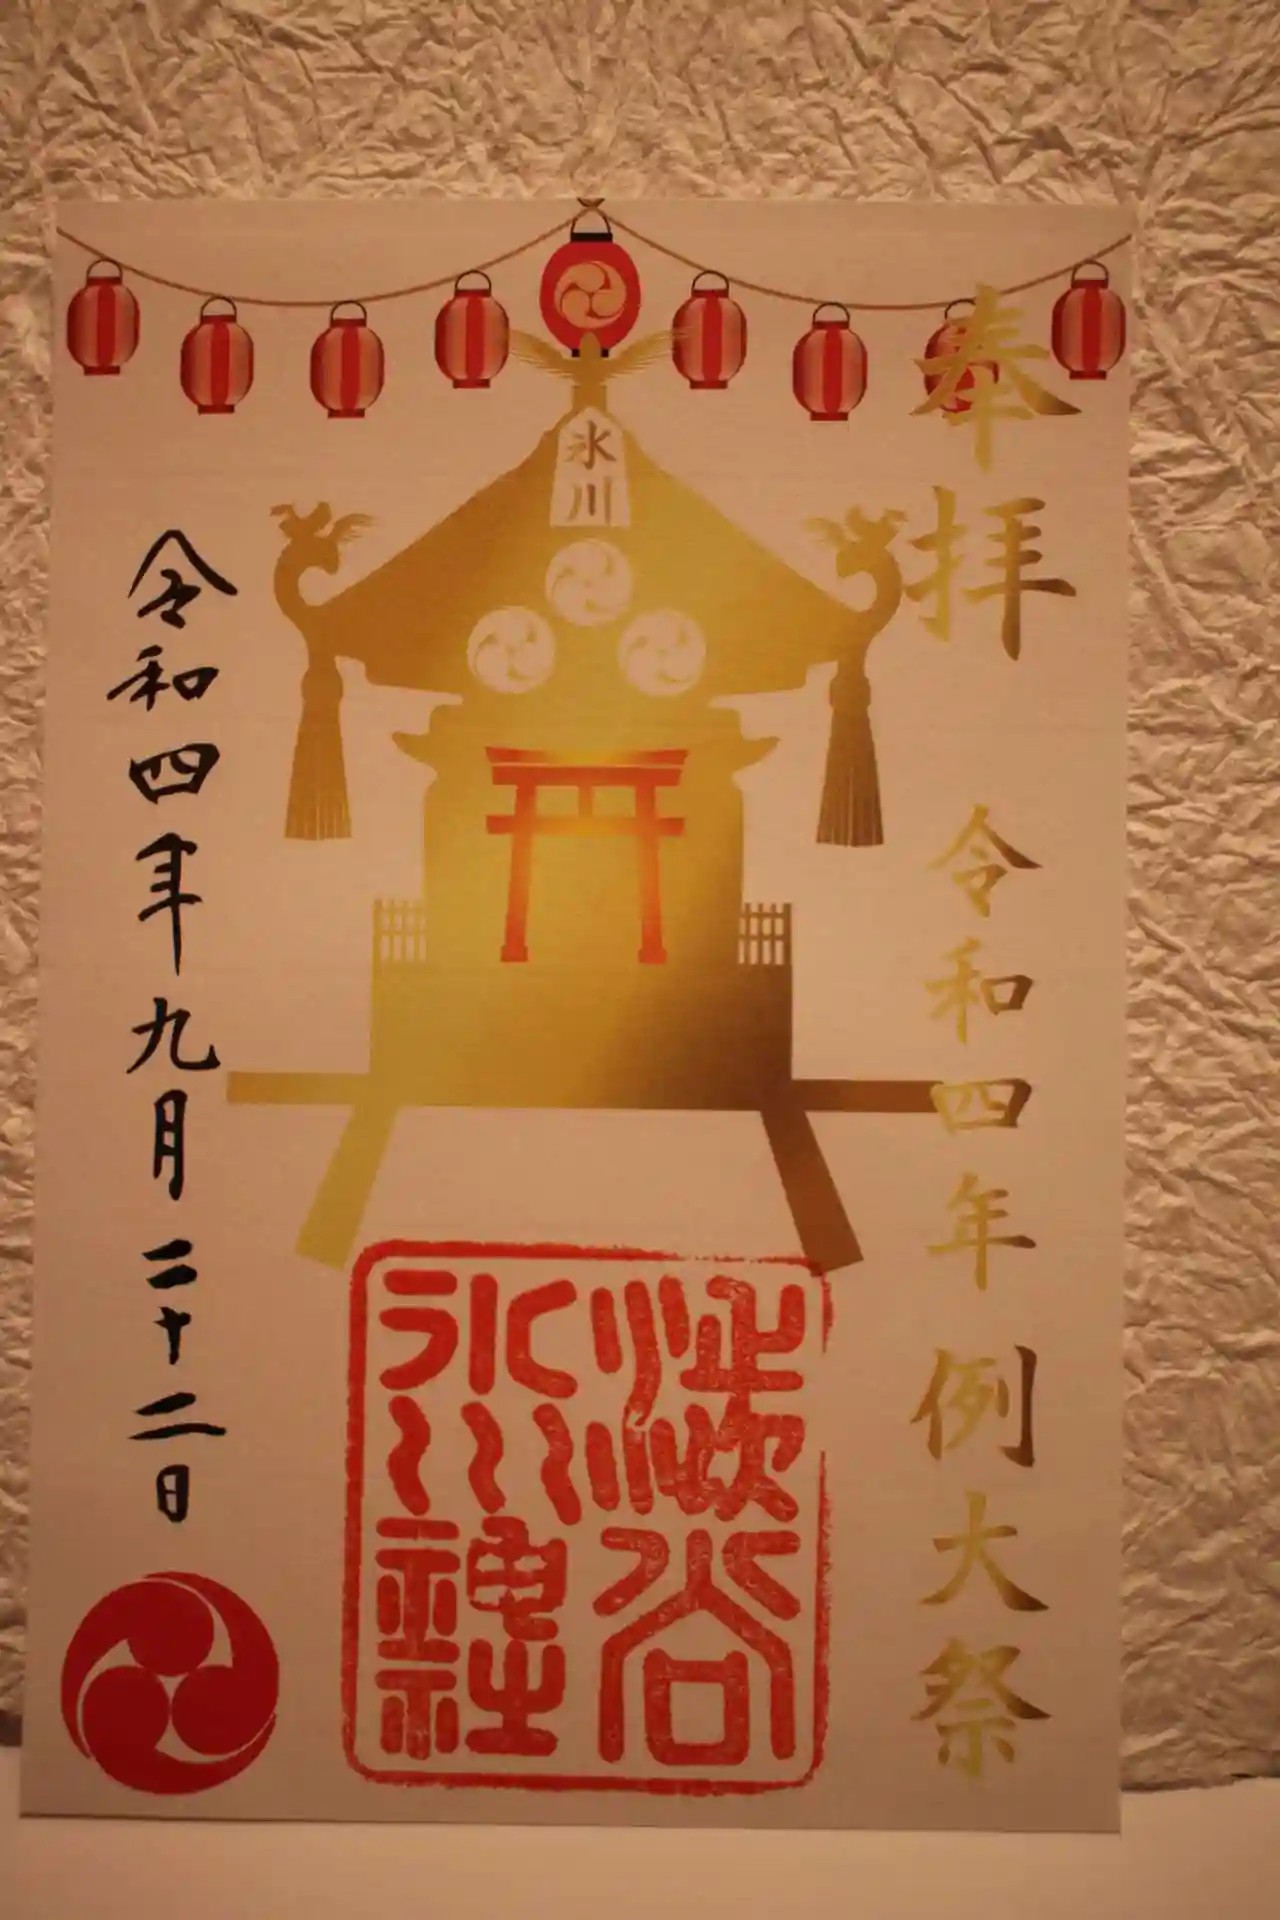 奉拝
令和四年 例大祭
氷川
澁谷
氷川神社
令和四年九月二十二日